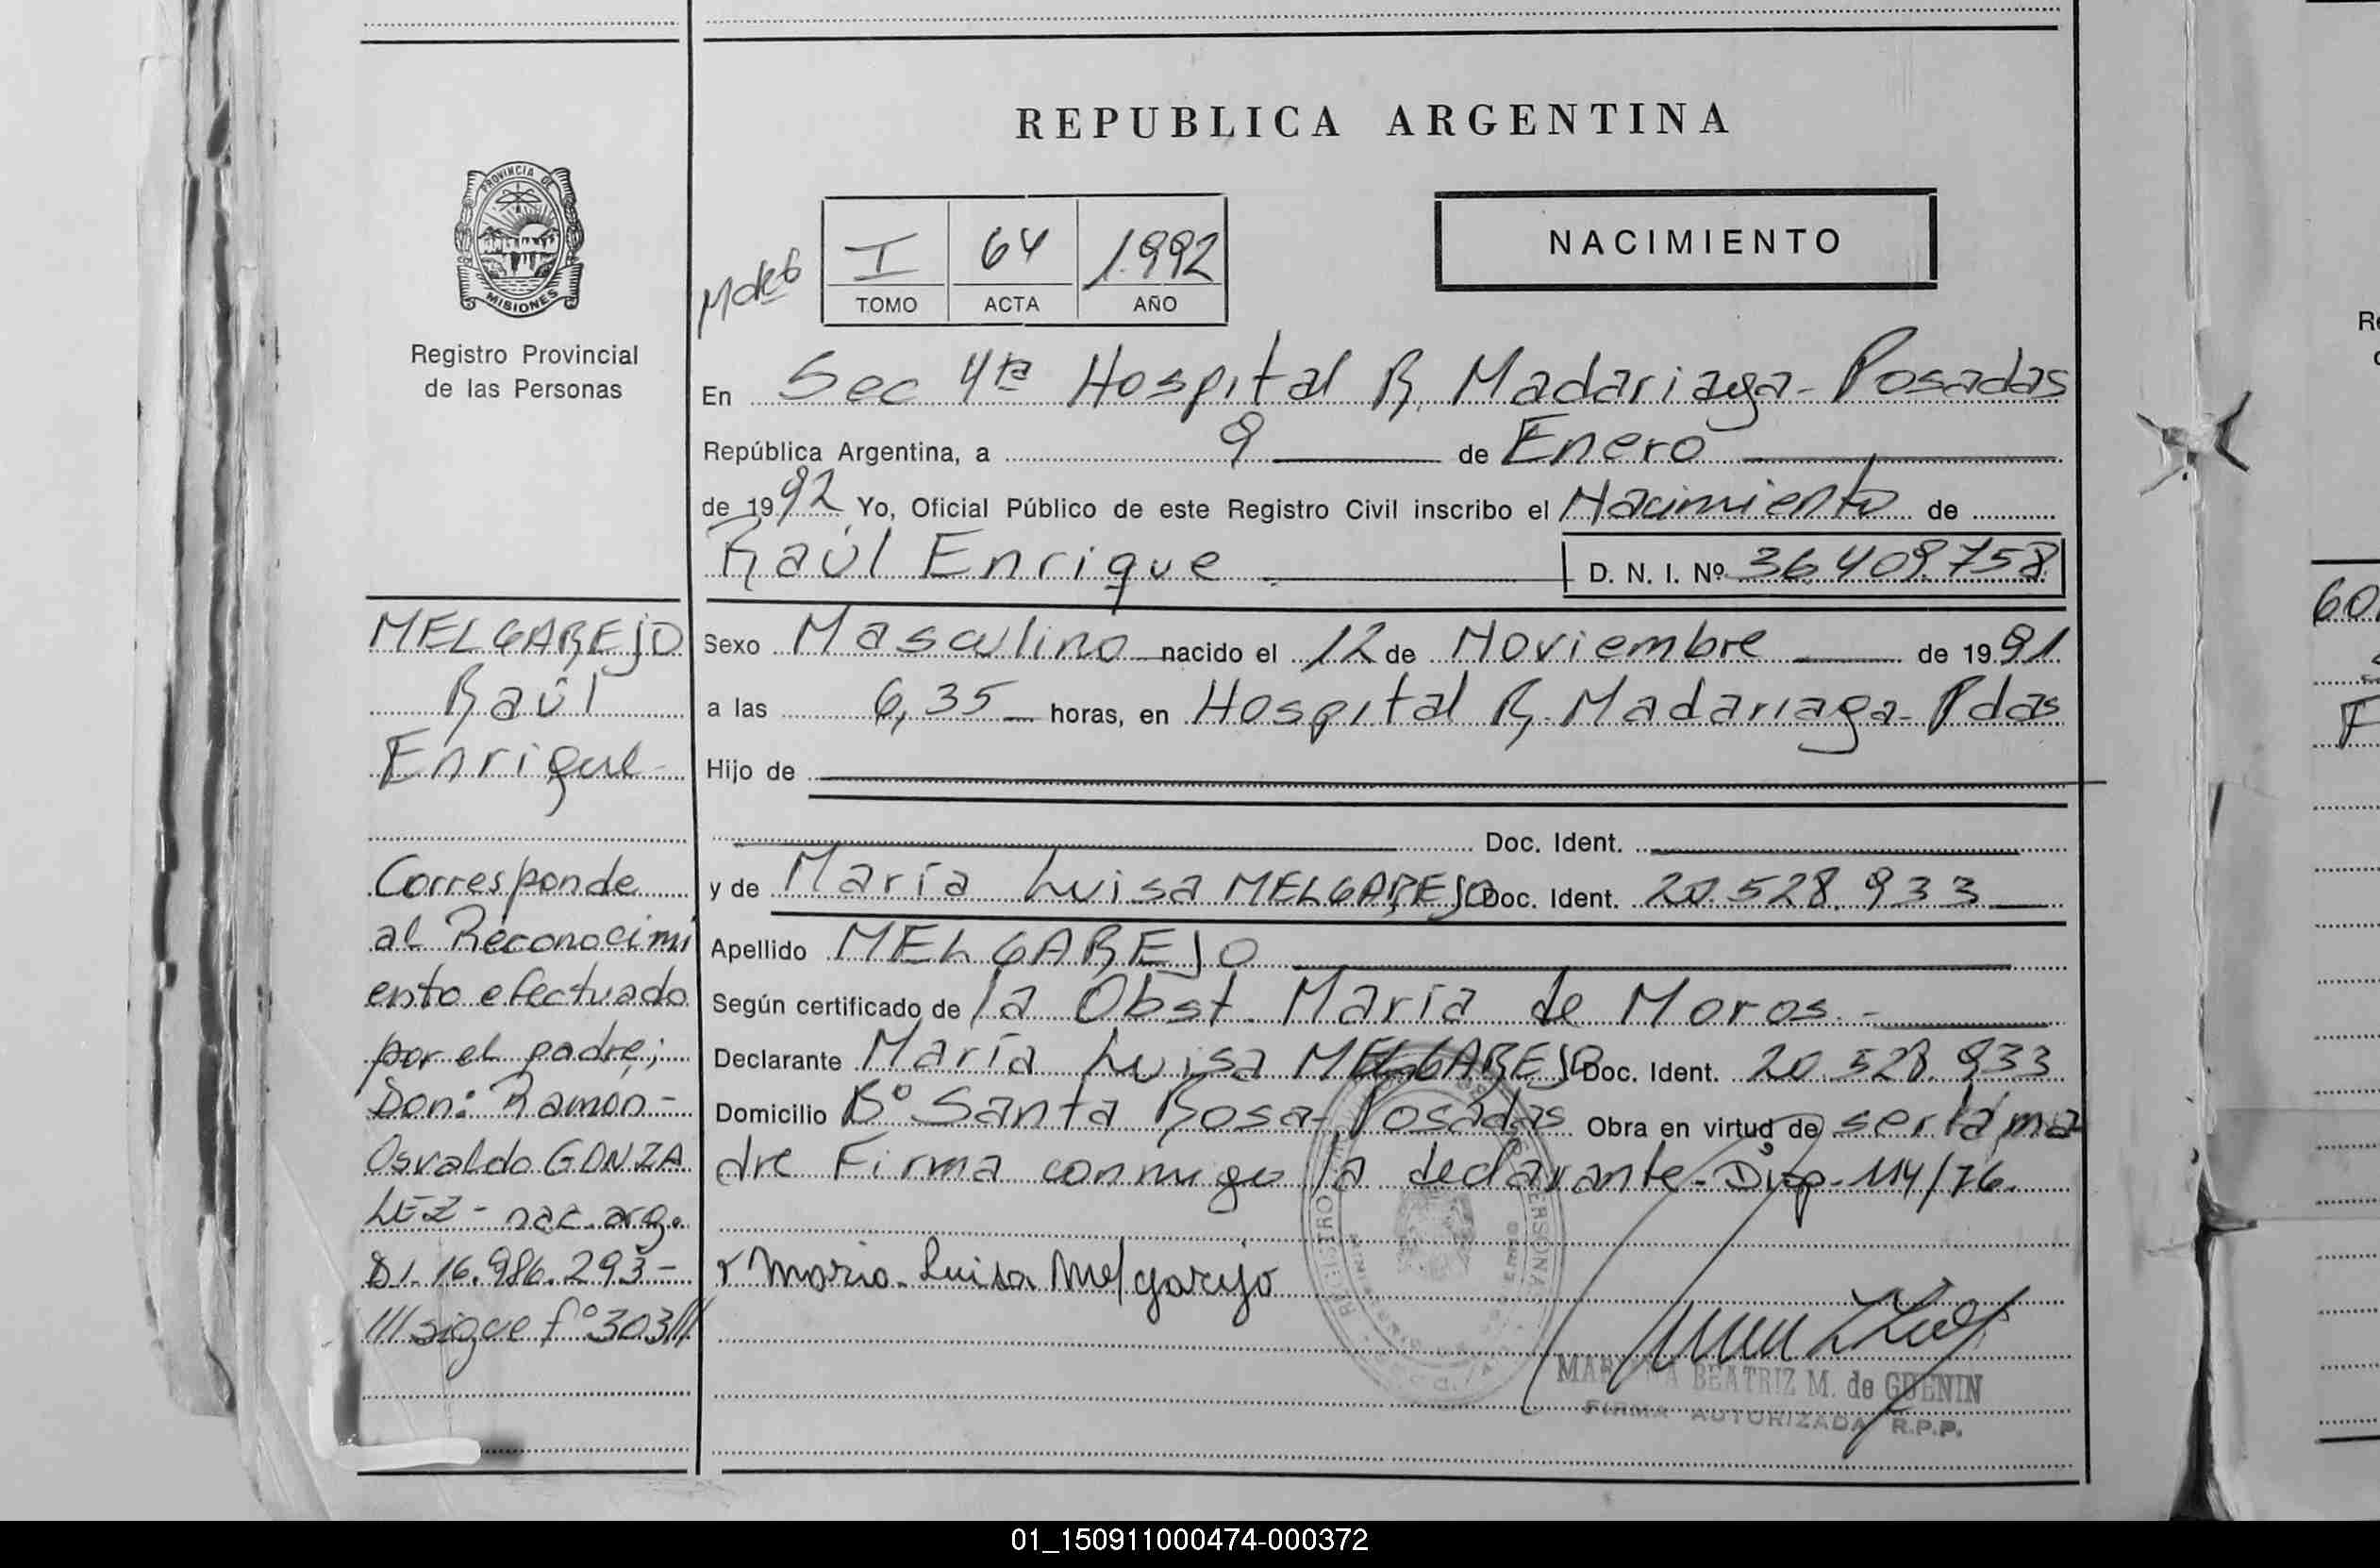 REPUBLICA ARGENTINA
PROVINCIA DE
MISIONES
Registro Provincial
de las Personas
NACIMIENTO
I 64 1.992
TOMO ACTA AÑO
En Sec 4ta Hospital R. Madariaga - Posadas
República Argentina, a 9 de Enero
de 1992 Yo, Oficial Público de este Registro Civil inscribo el Nacimiento de
Raúl Enrique D. N. I. Nº 36.409.758
Sexo Masculino nacido el 12 de Noviembre de 1991
a las 6,35 horas, en Hospital R. Madariaga - Pdas
Hijo de
Doc. Ident.
y de María Luisa MELGAREJO Doc. Ident. 20.528.933
Apellido MELGAREJO
Según certificado de la Obst. María de Moros.-
Declarante María Luisa MELGAREJO Doc. Ident. 20.528.933
Domicilio Bº Santa Rosa - Posadas Obra en virtud de ser la ma
dre Firma conmigo la declarante - Disp - 114/76.
Maria Luisa Melgarejo
BEATRIZ M. de GUENIN
FIRMA AUTORIZADA R.P.P.
MELGAREJO
Raúl
Enrique -
Corresponde
al Reconocimi
ento efectuado
por el padre;
Don: Ramón -
Osvaldo GONZA
LEZ - nac. arg.
DI. 16.986.293 -
/// sigue fº 303///
01_150911000474-000372